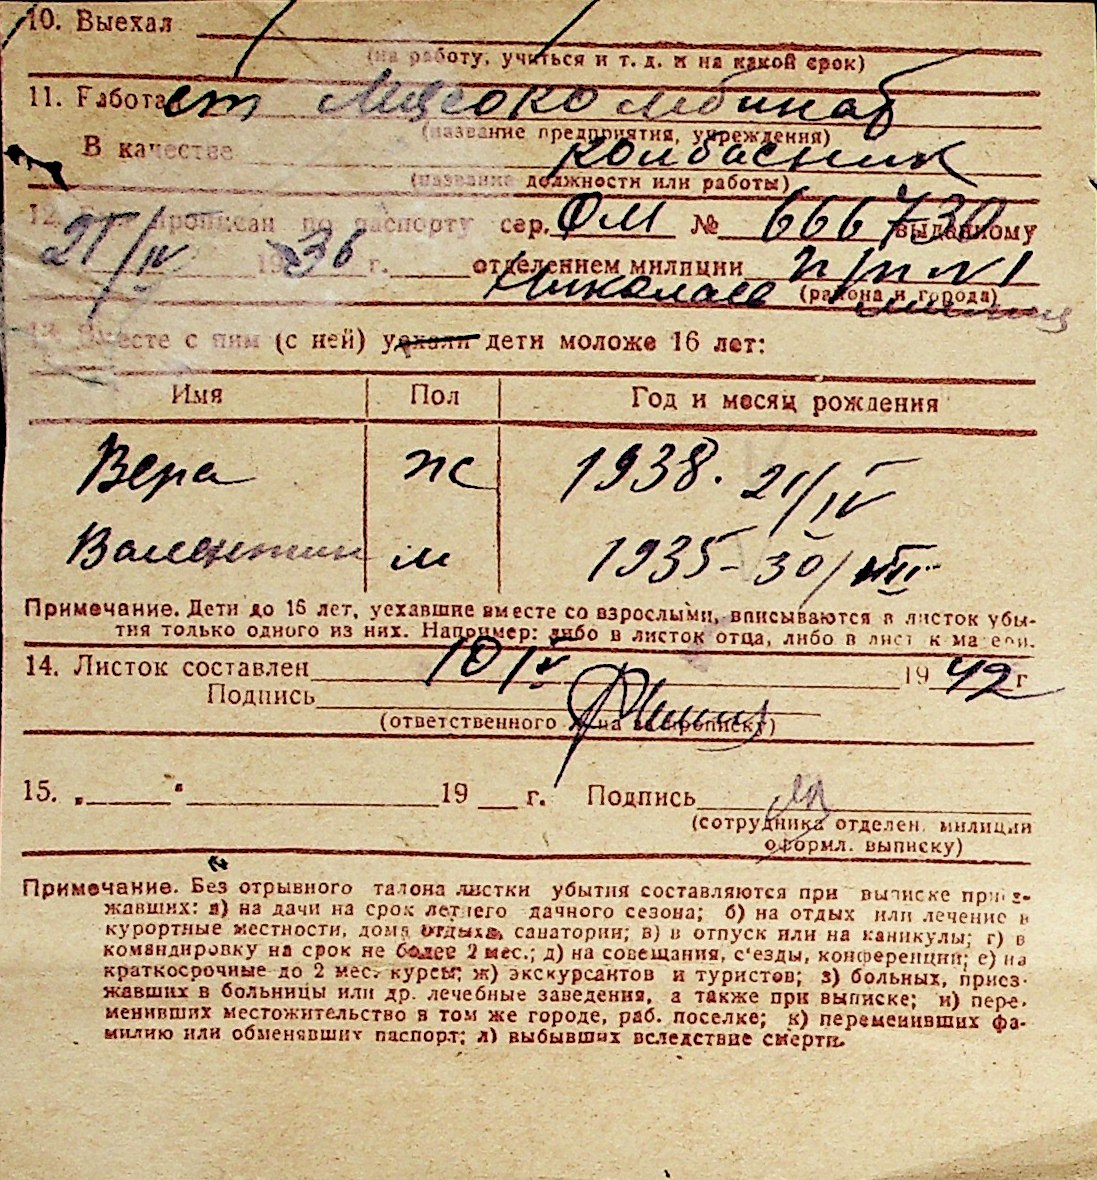 10. Выехал
(на работу, учиться и т. д. и на какой срок)
11. Работает Мясокомбинат
(название предприятия, учреждения)
В качестве колбасник
(название должности или работы)
12. прописан по паспорту сер. ОМ № 666730 выданному
21/IV 1936 г. отделением милиции п/п №1
Николаев милиц
(района и города)
13. Вместе с ним (с ней) уехали дети моложе 16 лет:
Имя Пол Год и месяц рождения
Вера ж 1938. 21/IV
Валентин м 1935 - 30/VIII
Примечание. Дети до 16 лет, уехавшие вместе со взрослыми, вписываются в листок убы-
тия только одного из них. Например: либо в листок отца, либо в лист к матери.
14. Листок составлен 10/V 1942 г
Подпись
(ответственного лица за прописку)
15. „ “ 19 г. Подпись
(сотрудника отделен. милиции
оформл. выписку)
Примечание. Без отрывного талона листки убытия составляются при выписке приез-
жавших: а) на дачи на срок летнего дачного сезона; б) на отдых или лечение в
курортные местности, дома отдыха, санатории; в) в отпуск или на каникулы; г) в
командировку на срок не более 2 мес.; д) на совещания, с'езды, конференции; е) на
краткосрочные до 2 мес. курсы; ж) экскурсантов и туристов; з) больных, приез-
жавших в больницы или др. лечебные заведения, а также при выписке; и) пере-
менивших местожительство в том же городе, раб. поселке; к) переменивших фа-
милию или обменявших паспорт; л) выбывших вследствие смерти.